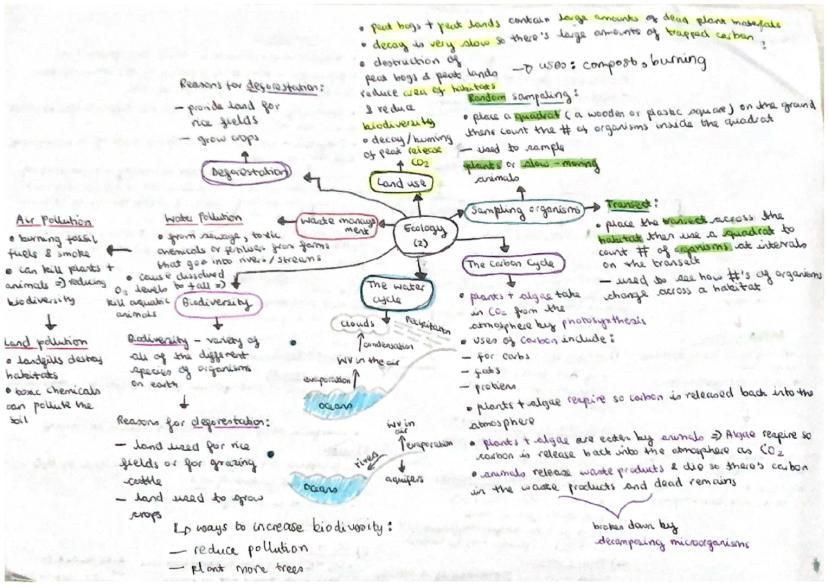 • peat bogs + peat lands contain large amounts of dead plant materials
• decay is very slow so there's large amounts of trapped carbon
• destruction of
peat bogs & peat lands
reduce area of habitats
& reduce
biodiversity
• decay/burning
of peat release
CO₂
→ uses: compost, burning
Land use
Random sampling:
• place a quadrat (a wooden or plastic square) on the ground
then count the # of organisms inside the quadrat
- used to sample
plants or slow-moving
animals
Sampling organisms
Transect:
• place the transect across the
habitat then use a quadrat to
count # of organisms at intervals
on the transect
- used to see how #'s of organisms
change across a habitat
Reasons for deforestation:
- provide land for
rice fields
- grow crops
Deforestation
Ecology
(2)
Waste manage
ment
Water pollution
• from sewage, toxic
chemicals or fertiliser from farms
that goo into rivers/streams
• cause dissolved
O₂ levels to fall ⇒
kill aquatic
animals
Air Pollution
• burning fossil
fuels & smoke
• can kill plants +
animals ⇒ reducing
biodiversity
Land pollution
• landfills destroy
habitats
• toxic chemicals
can pollute the
soil
Biodiversity
Biodiversity - variety of
all of the different
species of organisms
on earth
Reasons for deforestation:
- land used for rice
fields or for grazing
cattle
- land used to grow
crops
↳ ways to increase biodiversity:
- reduce pollution
- plant more trees
The water
cycle
clouds
Precipitation
condensation
WV in the air
evaporation
oceans
WV in
air
evaporation
rives
oceans
aquifers
The Carbon Cycle
• plants + algae take
in CO₂ from the
atmosphere by photosynthesis
• uses of carbon include:
- for carbs
- fats
- protiens
• plants + algae respire so carbon is released back into the
atmosphere
• plants + algae are eaten by animals ⇒ Algae respire so
carbon is release back into the atmosphere as CO₂
• animals release waste products & die so there's carbon
in the waste products and dead remains
broken down by
decomposing microorganisms